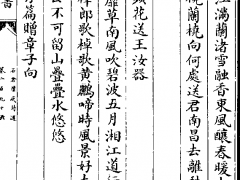 江滿蘭渚雪融香東風釀春暖
蘭橈向何處送君南昌去離
花送王汝器
草南風吹碧波五月湘江道
棹郎歌棹歌黃鸝啼時風景好
去不可留山疊疊水悠悠
篇贈章子向